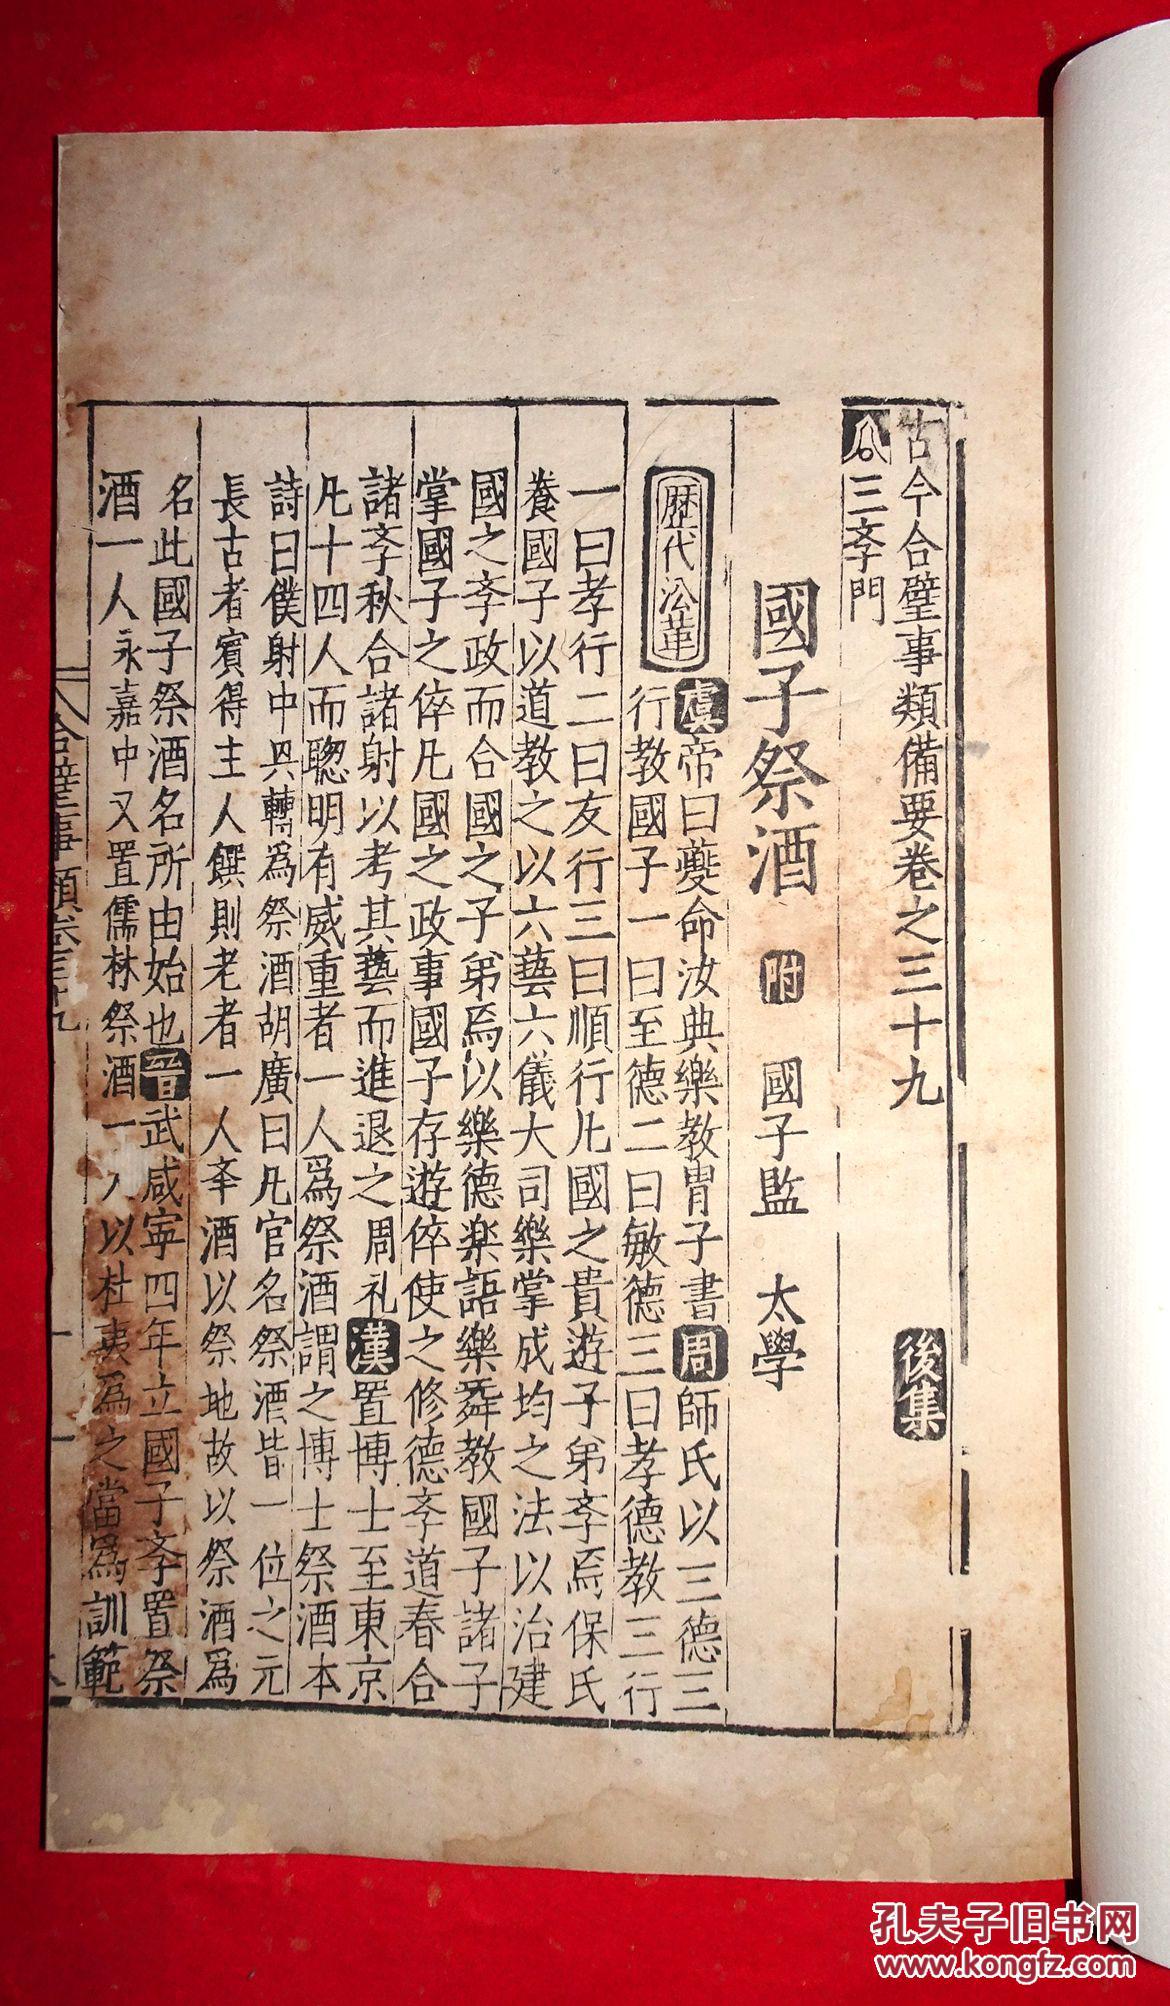 古今合璧事類備要卷之三十九 後集
三斈門
國子祭酒 附 國子監 太學
歷代沿革
虞帝曰夔命汝典樂教胄子書周師氏以三德三
行教國子一曰至德二曰敏德三曰孝德教三行
一曰孝行二曰友行三曰順行凡國之貴遊子弟斈焉保氏
養國子以道教之以六藝六儀大司樂掌成均之法以治建
國之斈政而合國之子弟焉以樂德楽語樂舞教國子諸子
掌國子之倅凡國之政事國子存遊倅使之修德斈道春合
諸斈秋合諸射以考其藝而進退之周礼漢置博士至東京
凡十四人而聦明有威重者一人爲祭酒謂之博士祭酒本
詩曰僕射中興轉爲祭酒胡廣曰凡官名祭酒皆一位之元
長古者賓得主人饌則老者一人举酒以祭地故以祭酒爲
名此國子祭酒名所由始也晉武咸寧四年立國子斈置祭
酒一人永嘉中又置儒林祭酒一人以杜夷爲之當爲訓範
合璧事類卷三十九
孔夫子旧书网
www.kongfz.com